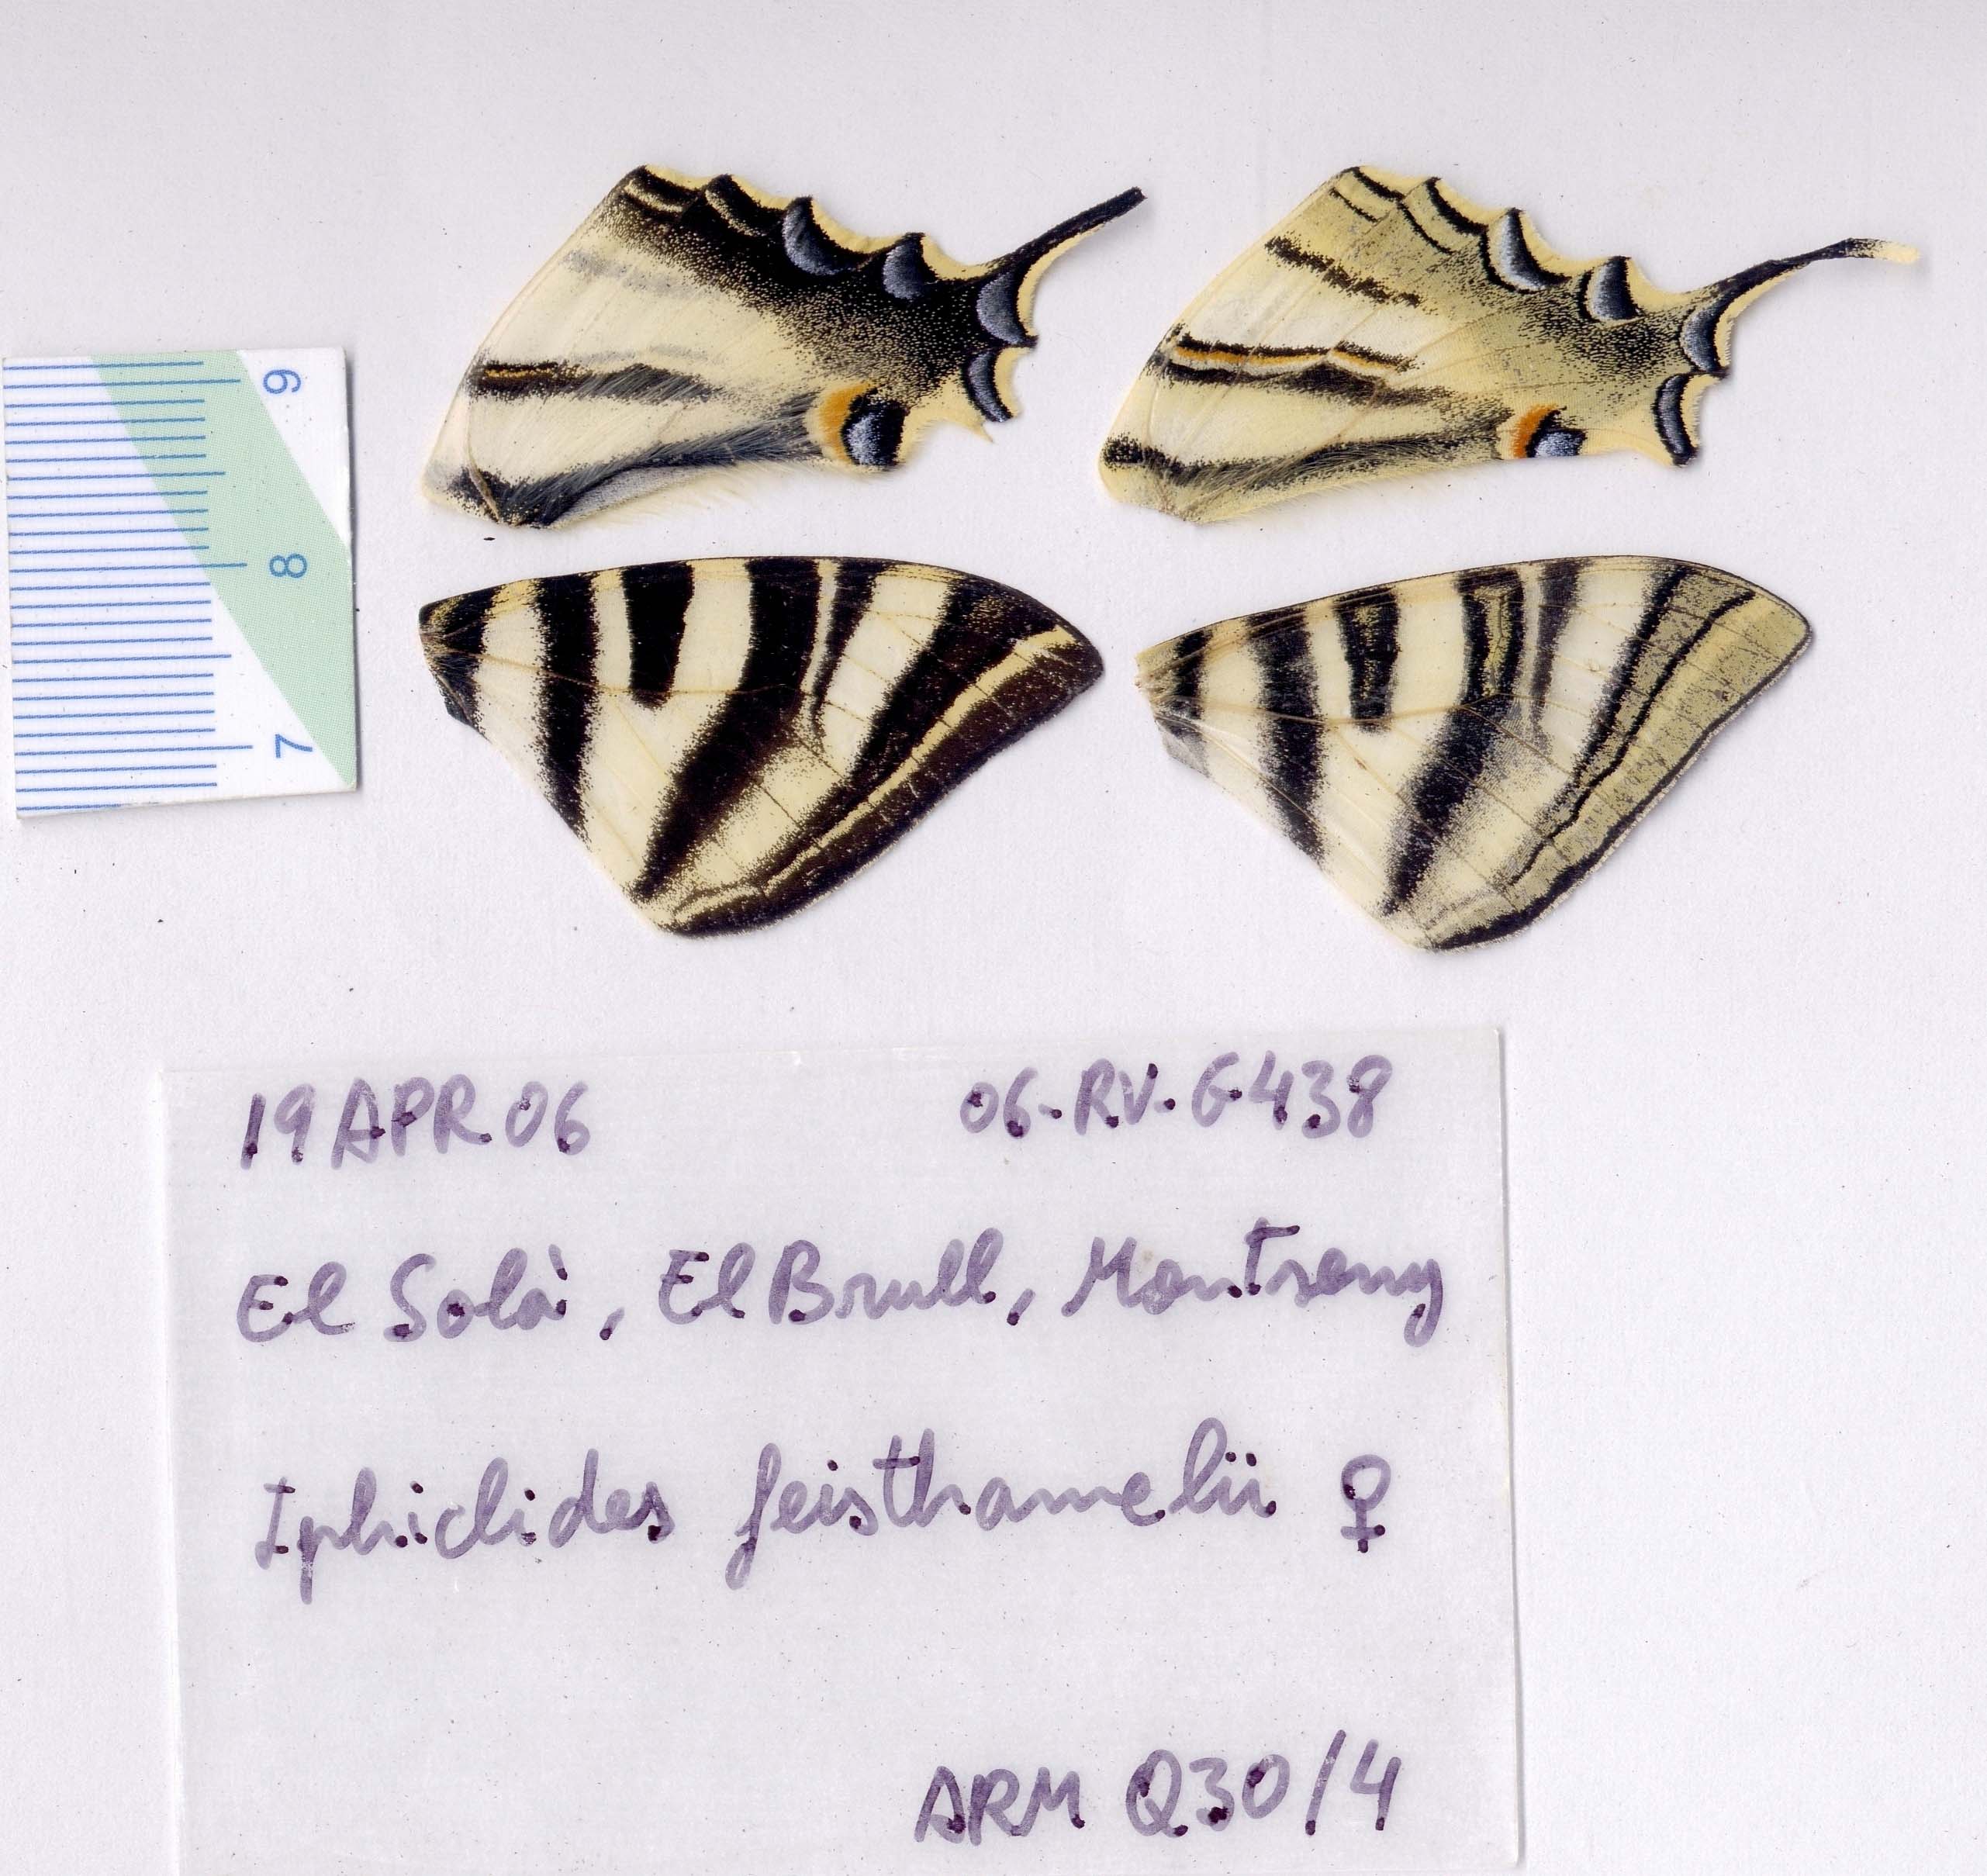 9
8
7
19 APR 06 06-RV-G438
El Solà, El Brull, Montseny
Iphiclides feisthamelii ♀
ARM Q30/4